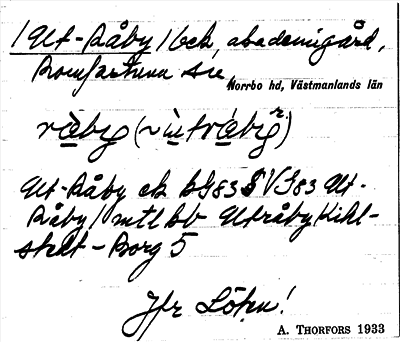 /Ut-Råby/ beb, akademigård,
Romfartuna sn,
Norrbo hd, Västmanlands län
Ut-Råby ek bG83 SV J83 Ut-
Råby/ mtl bb Utråby Kihl-
stedt-Borg 5
Jfr Löten!
A. THORFORS 1933